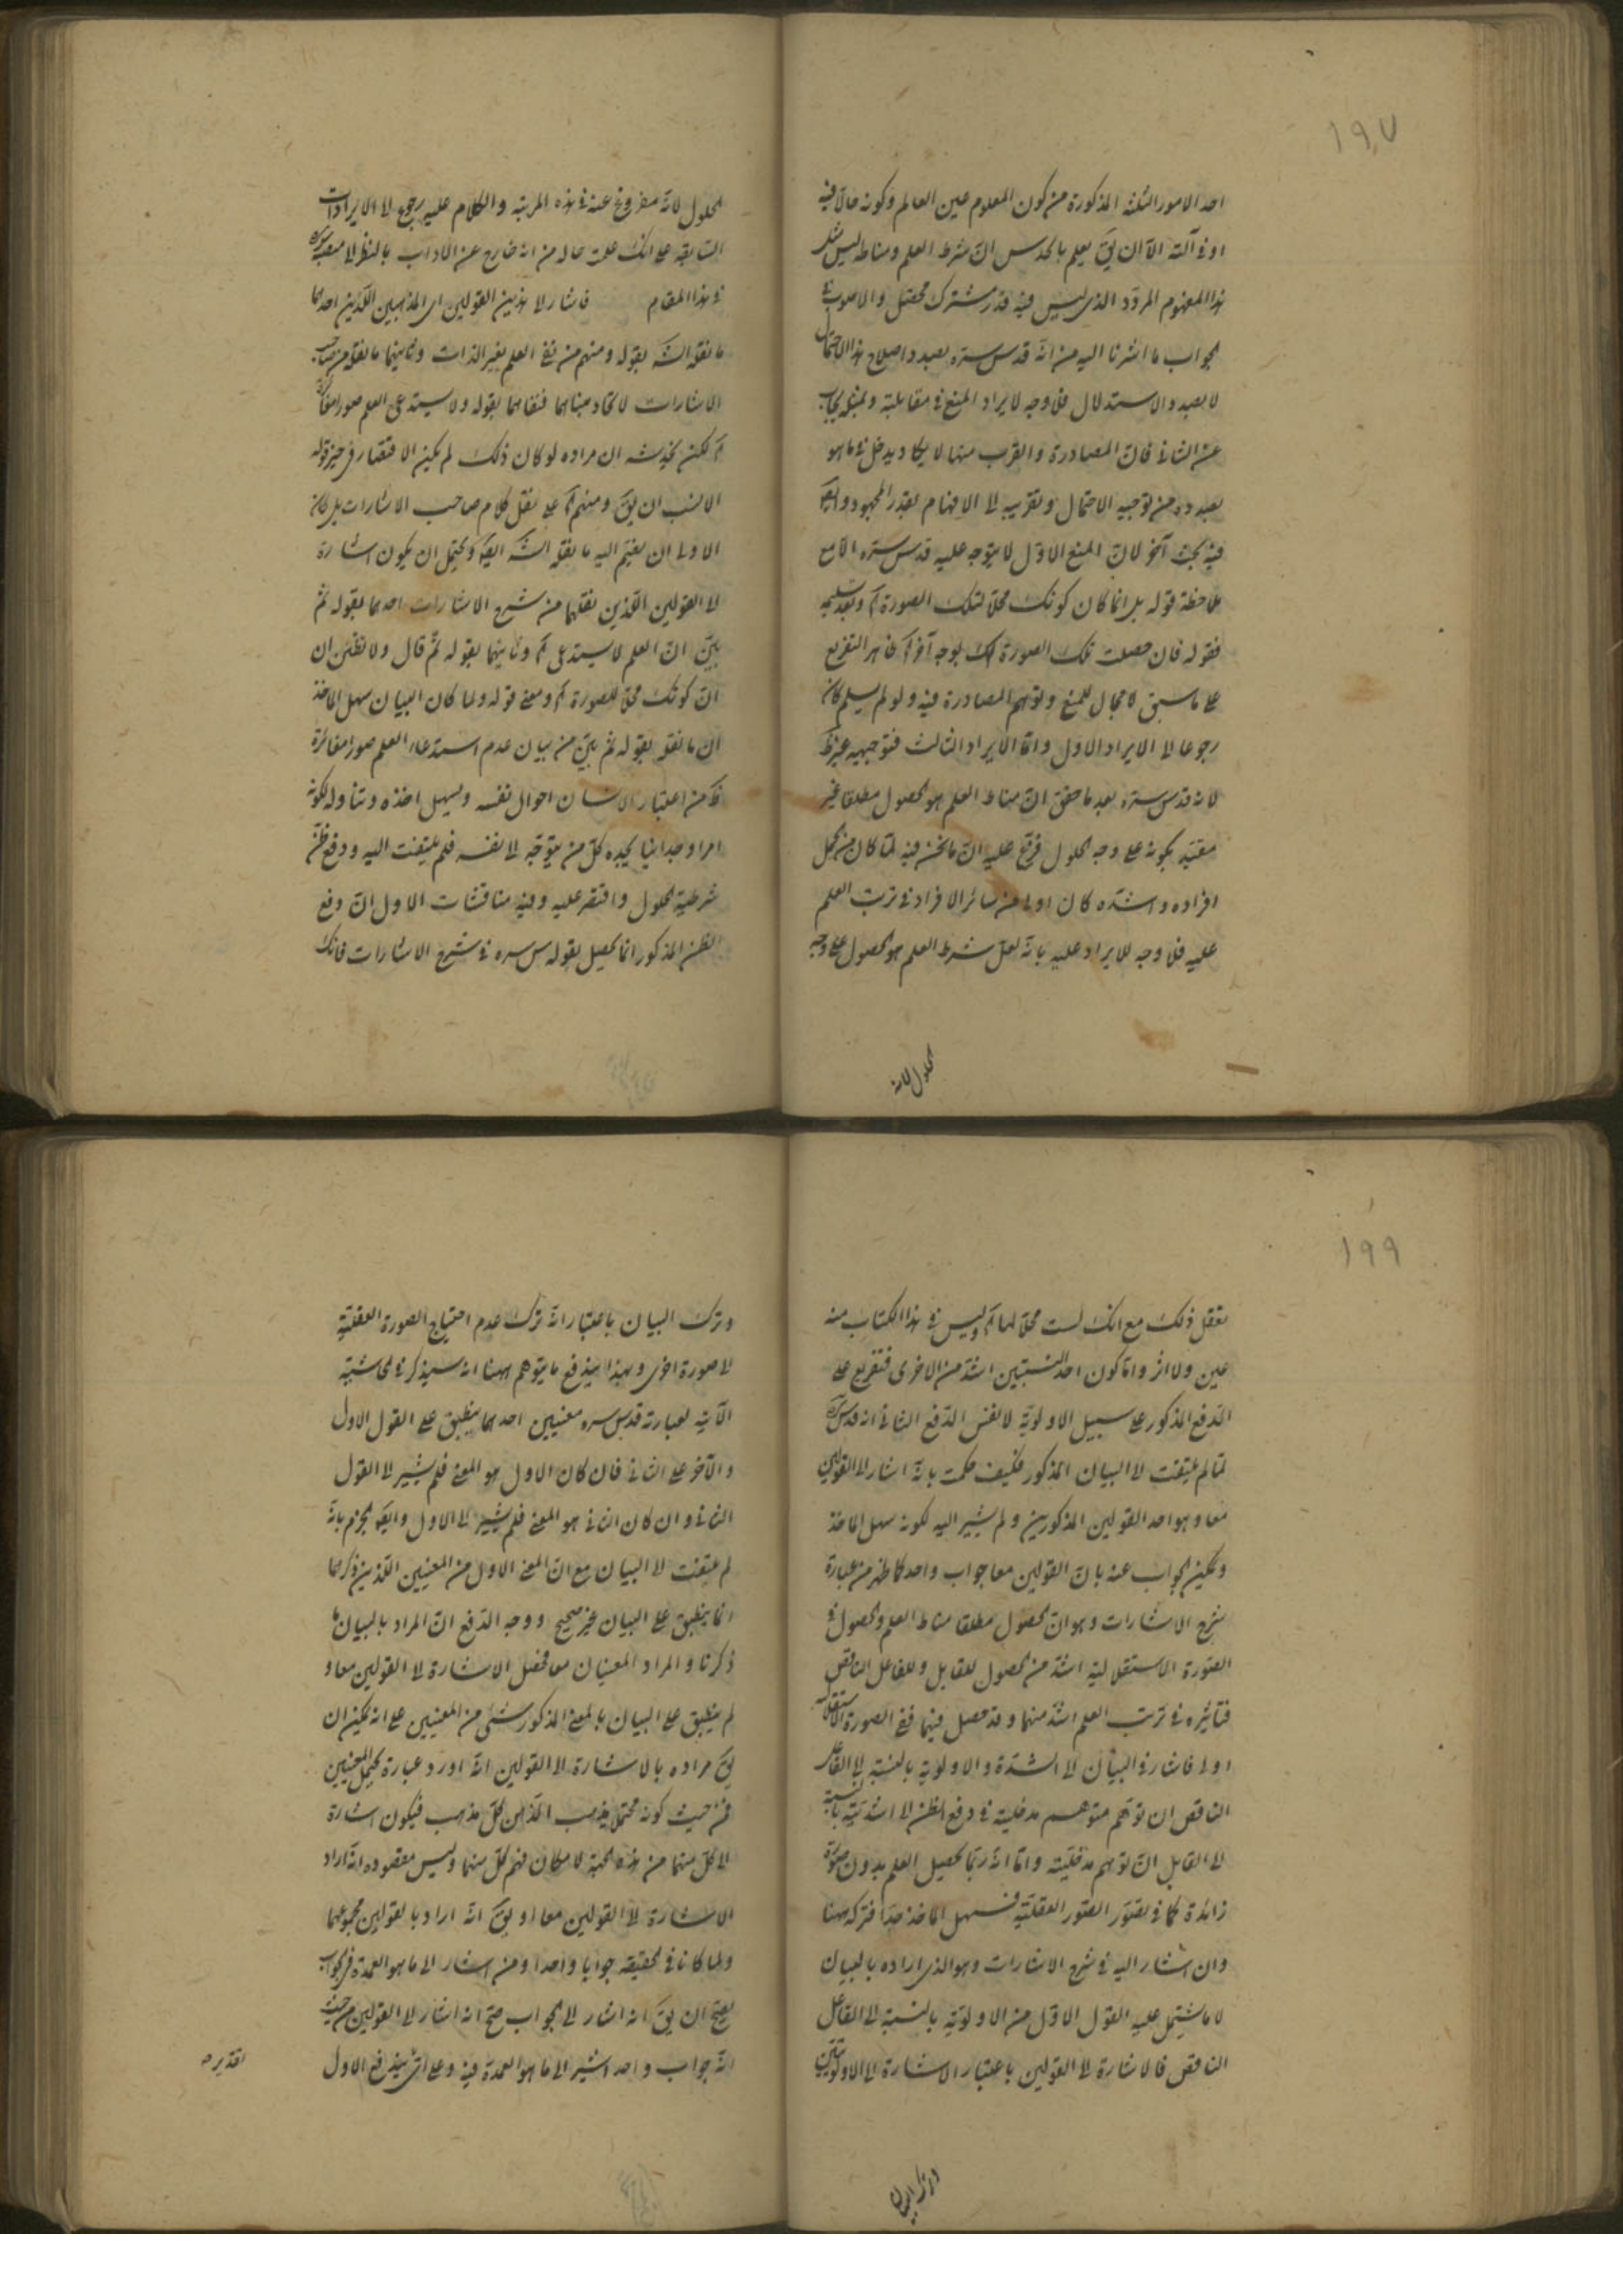 ١٩٧
احد الامور الثلثه المذكورة من كون المعلوم عين العالم وكونه حالا فيه
او فى آلته الا ان يق يعلم بالحدس ان شرط العلم ومناطه ليس مثل
هذا المفهوم المردد الذى ليس فيه قدر مشترك محصل والاصوب فى
الجواب ما اشرنا اليه من انه قدس سره بصدد اصلاح هذا الاحتمال
لا بصدد الاستدلال فلا وجه لايراد المنع فى مقابلته وبمثله يجاب
عن الثانى فان المصادرة والقرب منها لا يكاد يدخل فى ما هو
بصدده من توجيه الاحتمال وتقريبه الى الافهام بقدر المجهود وايضا
فيه بحث آخر لان المنع الاول لا يتوجه عليه قدس سره الا مع
ملاحظة قوله بل انما كان كونك محلا لتلك الصورة الخ وبعد تسليمه
فقوله فان حصلت تلك الصورة لك بوجه آخر الخ ظاهر التفريع
على ما سبق لا مجال للمنع وتوهم المصادرة فيه ولو لم يسلم كان
رجوعا الى الايراد الاول واما الايراد الثالث فتوجيهه غير ظ
لانه قدس سره بعد ما حقق ان مناط العلم هو الحصول مطلقا غير
مقيد بكونه على وجه الحلول فرع عليه ان ما نحن فيه لما كان من اكمل
افراده واشده كان اولى من سائر الافراد فى ترتب العلم
عليه فلا وجه للايراد عليه بانه لعل شرط العلم هو الحصول على وجه
الحلول لانه
الحلول لانه مفروغ عنه فى هذه المرتبه والكلام عليه رجوع الى الايرادات
السابقه على انك علمت حاله من انه خارج عن الاداب بالنظر الى
فى هذا المقام فاشار الى هذين القولين اى المذهبين اللذين احدهما
ما نقله الش بقوله ومنهم من نفى العلم بغير الذات وثانيهما ما نقله من صاحب
الاشارات لاتحاد مبناهما فنفاهما بقوله ولا يستدعى العلم صورا مغايرة
الخ لكن يخدشه ان مراده لو كان ذلك لم يكن الاقتصار فى حيز قوله
الانسب ان يق ومنهم الخ على نقل كلام صاحب الاشارات بل كان
الاولى ان يضم اليه ما نقله الش ايضا ويحتمل ان يكون اشارة
الى القولين اللذين نقلهما من شرح الاشارات احدهما بقوله ثم
بين ان العلم لا يستدعى الخ وثانيهما بقوله ثم قال ولا تظنن ان
ان كونك محلا للصورة الخ ومعنى قوله ولما كان البيان سهل الماخذ
ان ما نقله بقوله ثم بين من بيان عدم استدعاء العلم صورا مغائرة
ظ من اعتبار الانسان احوال نفسه وليسهل اخذه وتناوله لكونه
امرا وجدانيا يجده كل من يتوجه الى نفسه فلم يلتفت اليه ودفع ظن
شرطية الحلول واقتصر عليه وفيه مناقشات الاول ان دفع
الظن المذكور انما يحصل بقوله س سره فى شرح الاشارات فانك
١٩٩
تعقل ذلك مع انك لست محلا لها الخ وليس فى هذا الكتاب منه
عين ولا اثر واما كون احد النسبتين اشد من الاخرى فتفريع على
الدفع المذكور على سبيل الاولوية لا نفس الدفع الثانى انه قدس سره
لما لم يلتفت الى البيان المذكور فكيف حكمت بانه اشار الى القولين
معا وهو احد القولين المذكورين ولم يشير اليه لكونه سهل الماخذ
ويمكن الجواب عنه بان القولين معا جواب واحد كما ظهر من عبارة
شرح الاشارات وهو ان الحصول مطلقا مناط العلم والحصول فى
الصورة الاستقلالية اشد من الحصول للقابل وللفاعل الناقص
فتاثيره فى ترتب العلم اشد منهما وقد حصل فيهما ففى الصورة الاستقلاليه
اولى فاشار فى البيان الى الشدة والاولوية بالنسبة الى الفاعل
الناقص ان توهم متوهم مدخليته فى دفع الظن الى اشديته بالنسبة
الى القابل ان توهم مدخليته واما انه ربما يحصل العلم بدون صورة
زائدة كما فى تصور الصور العقلية فسهل الماخذ جدا فتركه ههنا
وان اشار اليه فى شرح الاشارات وهو الذى اراده بالبيان
لا ما يشتمل عليه القول الاول من الاولوية بالنسبة الى الفاعل
الناقص فالاشارة الى القولين باعتبار الاشارة الى الاولويتين
وترك البيان
وترك البيان باعتبار انه ترك عدم احتياج الصورة العقلية
الى صورة اخرى وبهذا يندفع ما يتوهم ههنا انه سيذكر فى الحاشية
الآتية لعبارته قدس سره معنيين احدهما ينطبق على القول الاول
والآخر على الثانى فان كان الاول هو المعنى فلم يشير الى القول
الثانى وان كان الثانى هو المعنى فلم يشير الى الاول وايضا الجزم بانه
لم يلتفت الى البيان مع ان المعنى الاول من المعنيين اللذين ذكرهما
انما ينطبق على البيان غير صحيح ووجه الدفع ان المراد بالبيان ما
ذكرنا والمراد المعنيان معا فحصل الاشارة الى القولين معا و
لم ينطبق على البيان بالمعنى المذكور شئ من المعنيين على انه يمكن ان
يق مراده بالاشارة الى القولين انه اورد عبارة يحتمل المعنيين
فمن حيث كونه محتملا يذهب الذهن كل مذهب فيكون اشارة
الى كل منهما من هذه الجهة لامكان فهم كل منهما وليس مقصوده انه اراد
الاشارة الى القولين معا او يق انه اراد بالقولين مجموعهما
ولما كانا فى الحقيقة جوابا واحدا ومن اشار الى ما هو العمدة فى الجواب
يصح ان يق انه اشار الى الجواب صح انه اشار الى القولين من حيث
انه جواب واحد اشير الى ما هو العمدة فيه وعلى اى يندفع الاول